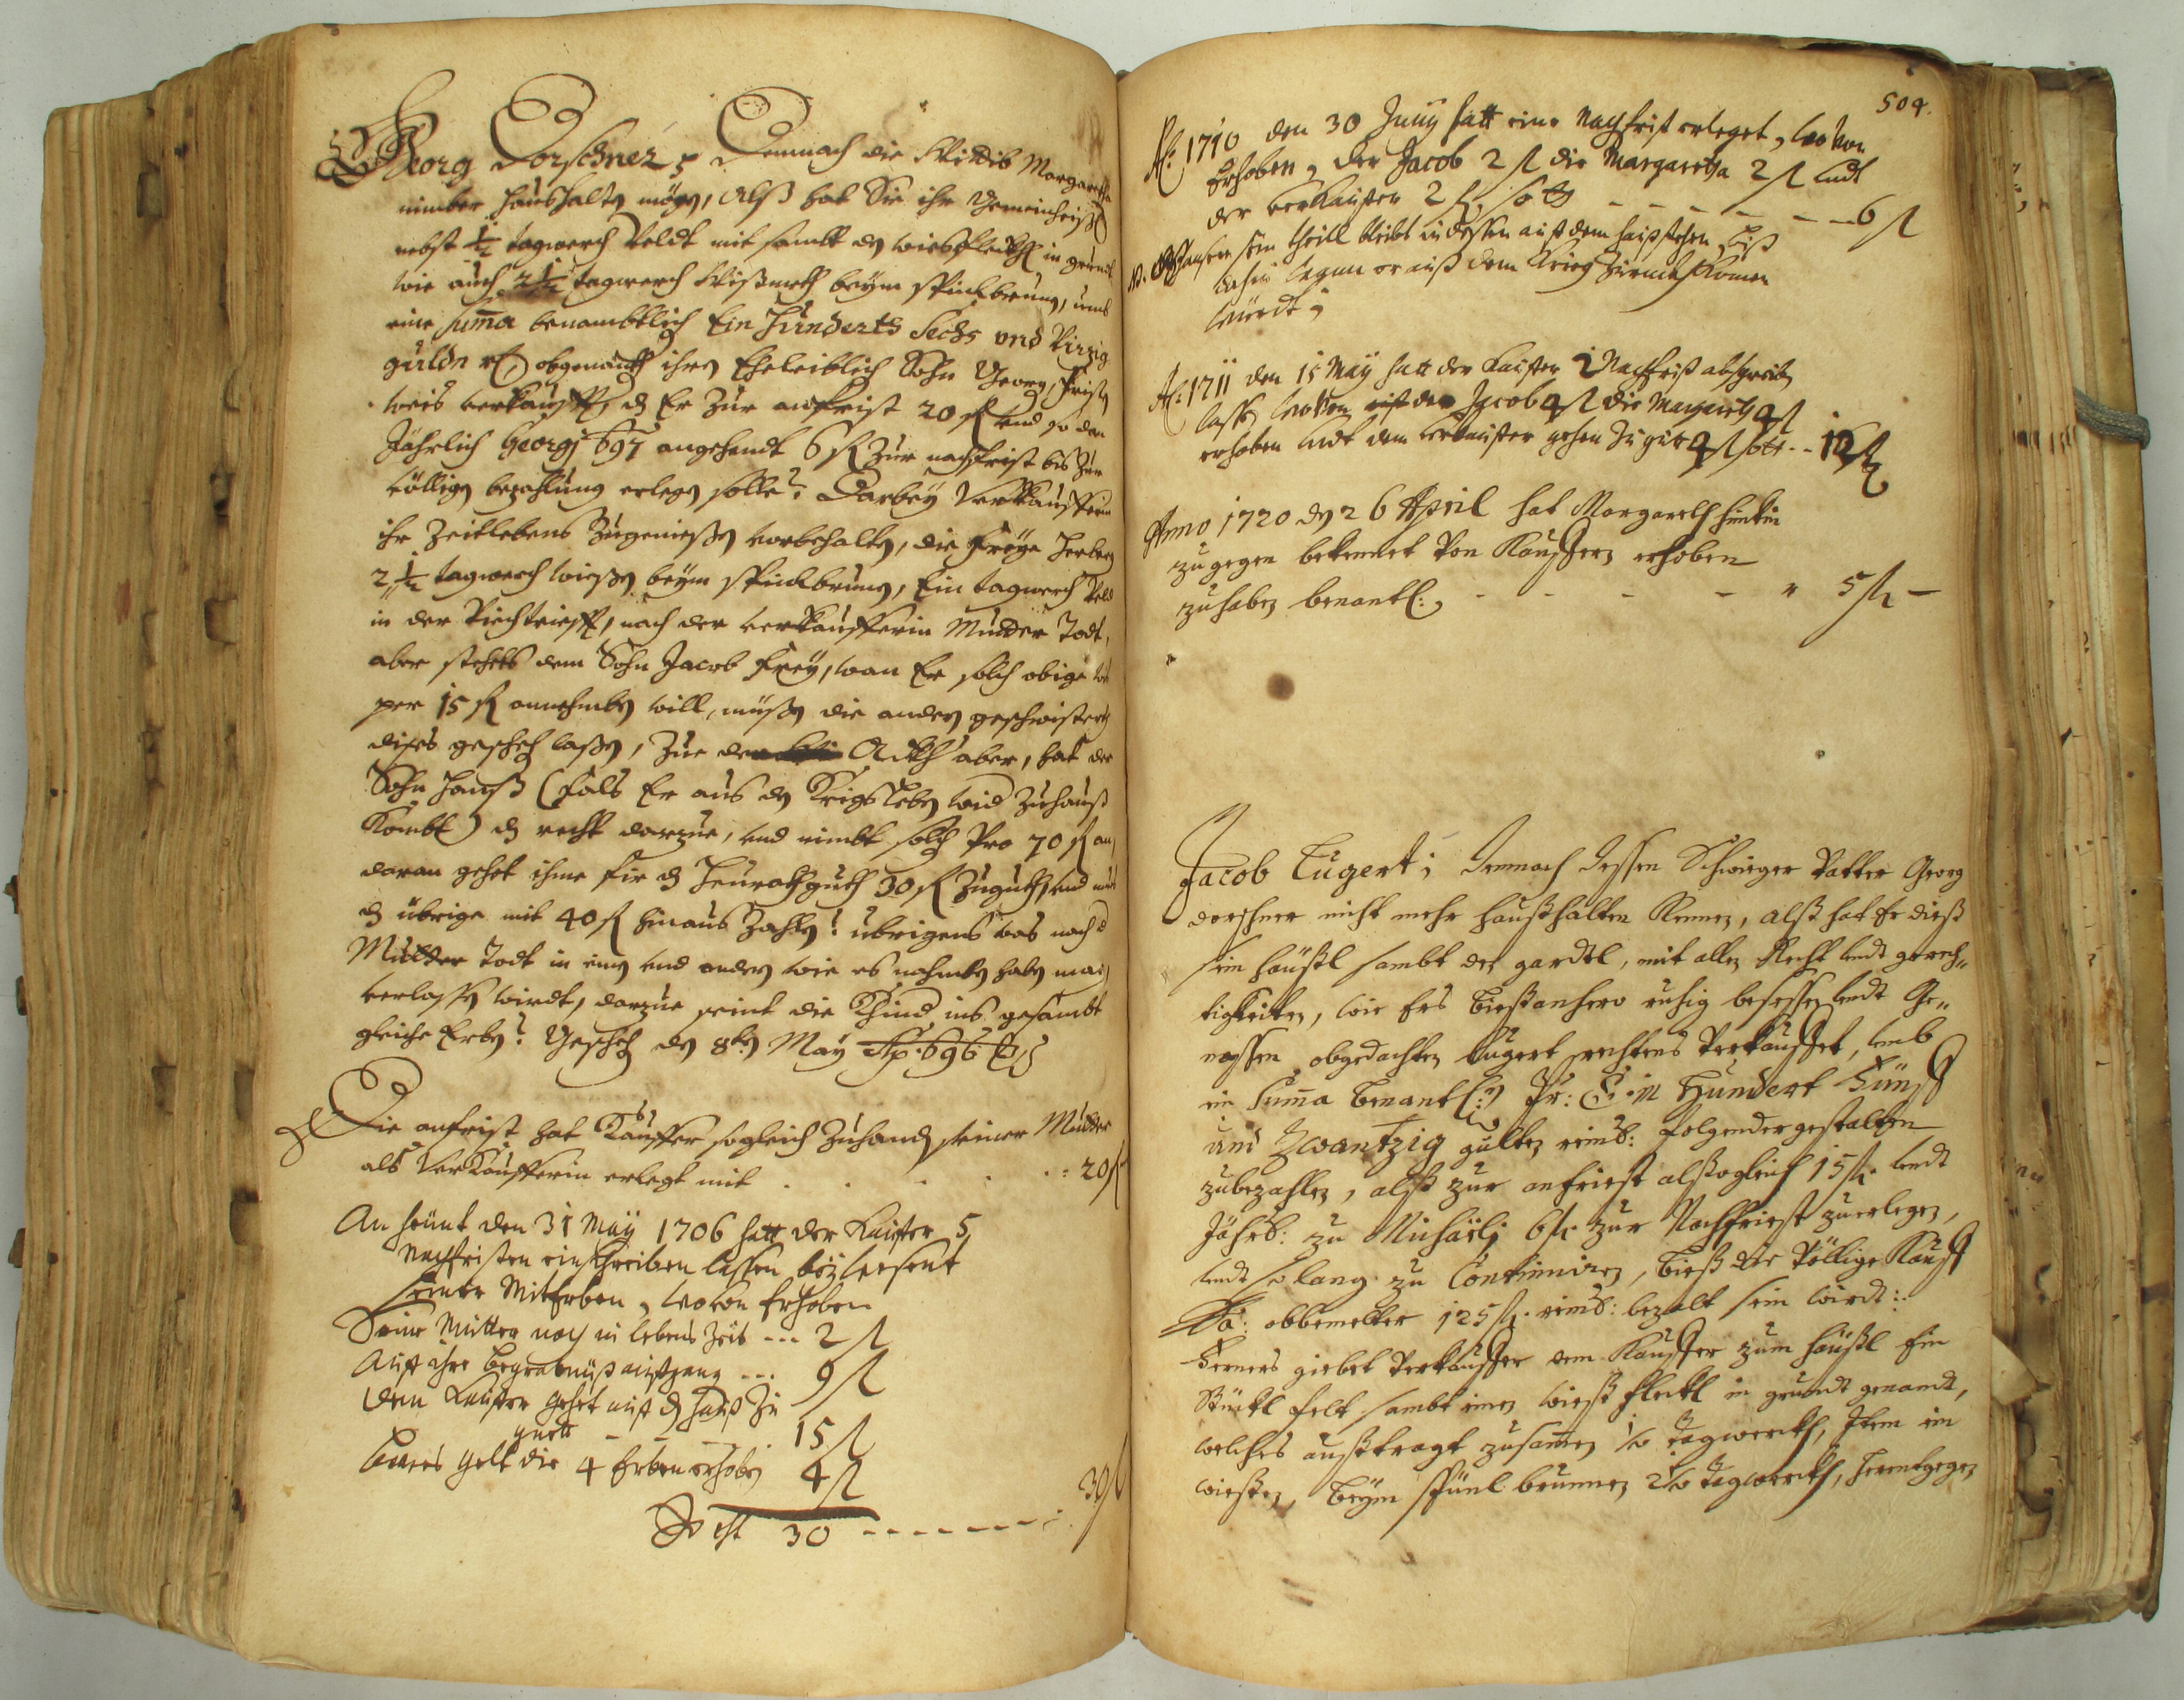 Georg Dorschner; Demnach die Wittib Margaretha
nimber haushalten mögen, Alß hat Sie ihr Gemeinheißl
nebst ½ tagwerch Veldt mit sambt den wiesfleckh in grundt
wie auch 2½ tagwerch Wißmeth beym Spielbrunn, umb
eine Suma benambtlich Ein Hunderts Sechs und Virzig
guldn obgenandt ihren Eheleiblich Sohn Georg, Fristen
weis verkaufft, das Er Zur anfrist 20 fl und so dan
Jährlich Georgj 697 angehendt 6 fl Zur nachfrist bis Zur
völligen bezahlung erlegen solle? Darbey Verkaufferin
ihr Zeitlebens Zugenießen vorbehalten, die Freye Herberg
2½ tagwerch wießen beym Spielbrunn, Ein tagwerch Veld
in der nach der verkaufferin Mutter Todt,
aber stehets dem Sohn Jacob Frey, wan Er solch obige
per 15 fl annehmben will, müßen die andern geschwistert
dises geschehen laßen, Zue den Ackh aber, hat der
Sohn Hanß (fals Er aus den Krigsleben wid Zuhauß
Kombt) das recht darzue, und nimbt solch Pro 70 fl an
daran gehet ihme für das Heurathguth 30 fl Zuguth, und
das übrige mit 40 fl hinaus Zahlen! übrigens was nach d
Mutter Todt in einen und andern wie es nahmben haben mag
verlassen wirdt, darzue seint die Khind ins gesambt
gleiche Erben? Geschehen den 8ten May Ao. 696
Die anfrist hat Käuffer sogleich Zuhanden seiner Mutter
als Verkäufferin erlegt mit . . . . : 20 fl
An heünt den 31 Maÿ 1706 hatt der Kaiffer 5
Nachfristen einschreiben lassen beÿ
seiner Miterben, wovon Erhoben
Seine Mutter noch in lebens Zeit --- 2 fl
Auf ihre Begrabnuß außgang --- 9 fl
Dem Keuffer gehet auf das Hauß Zu
guett - - - 15 fl
gelt die 4 Erben erhoben 4 fl
So ist 30 - - - - - - : 30 fl
504.
Ao: 1710 den 30 Junÿ hatt eine Nachfrist erleget, wovon
Erhoben, der Jacob 2 fl die Margaretha 2 fl undt
der verkauffer 2 fl, sotts - - - - - 6 fl
NB. sein theill bleibt indessen auf dem hauß stehen, biß
er auß dem Krieg Zuruckh Komen
wurdt;
Ao: 1711 den 15 Maÿ hatt der Kaiffer 2 Nachfrist abschreiben
lassen wovon der Jacob 4 fl die Margareth 4 fl
erhoben undt dem verkauffer gehen zu gutt 4 fl sott - - 12 fl
Anno 1720 den 26 April hat Margareth
zugegen bekennet von Kauffern erhoben
zuhaben benantl: - - - - " 5 fl -
Jacob Lugert; Demnach dessen Schwieger Vatter Georg
dorschner nicht mehr haußhalten Kennen, alß hat Er dieß
sein häußl sambt den gardtl, mit allen Recht undt gerech„
tigkeiten, wie Ers bießanhero ruhig besessen undt Ge„
nossen, obgedachten Lugert rechtens verkauffet, umb
ein Suma benantl: Pr: Ein Hundert Fünf
und Zwantzig gulten reinis: folgender gestalten
zubezahlen, alß zur anfriest alßogleich 15 fl. undt
Jährl: zu Michäelj 6 fl zur Nachfriest zuerlegen,
undt so lang zu Continuiren, bieß die völlige Kauf
Sa: obbemelter 125 fl. reinis: bezalt sein wirdt:
Ferners giebet Verkauffer dem Kauffer zum häußl Ein
Stückl feld sambt einen wieß fleckl in grundt genandt,
welches außtragt zusamen ½ Tagwerckh, Item ein
wiesen, beym Spünlbrunnen 2½ Tagwerckh, herentgegen